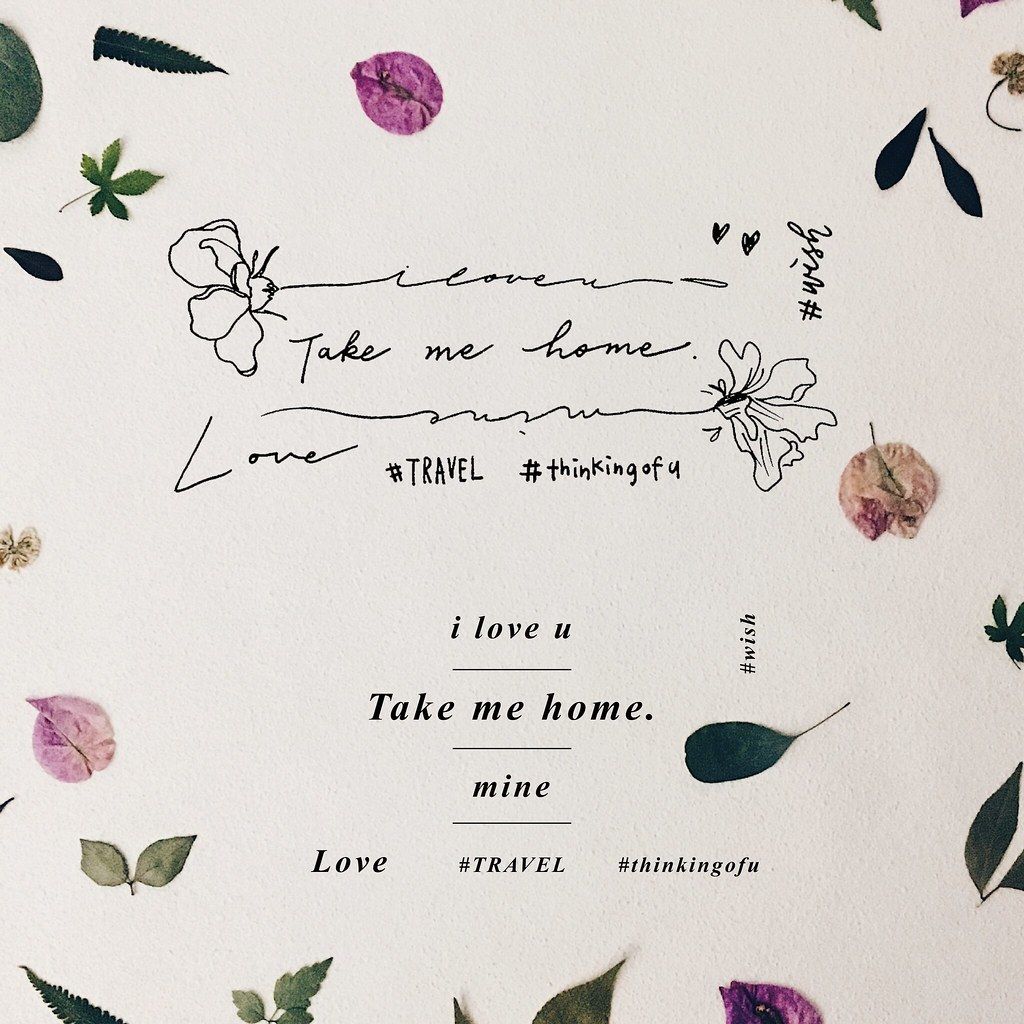 i love u
#wish
Take me home.
mine
Love
#TRAVEL #thinkingofu
i love u
#wish
Take me home.
mine
Love #TRAVEL #thinkingofu